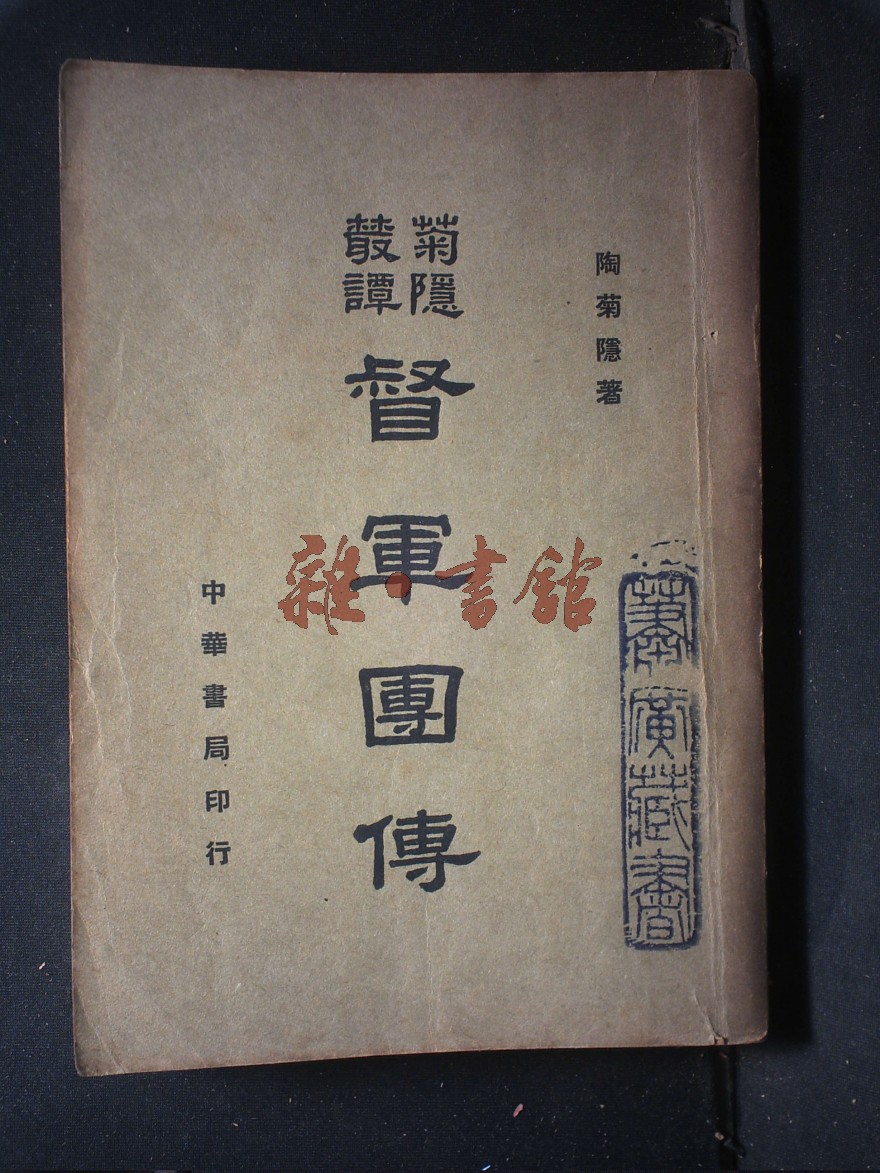 陶菊隱著
菊隱
叢譚
督軍團傳
中華書局印行
廣藏書
雜·書館